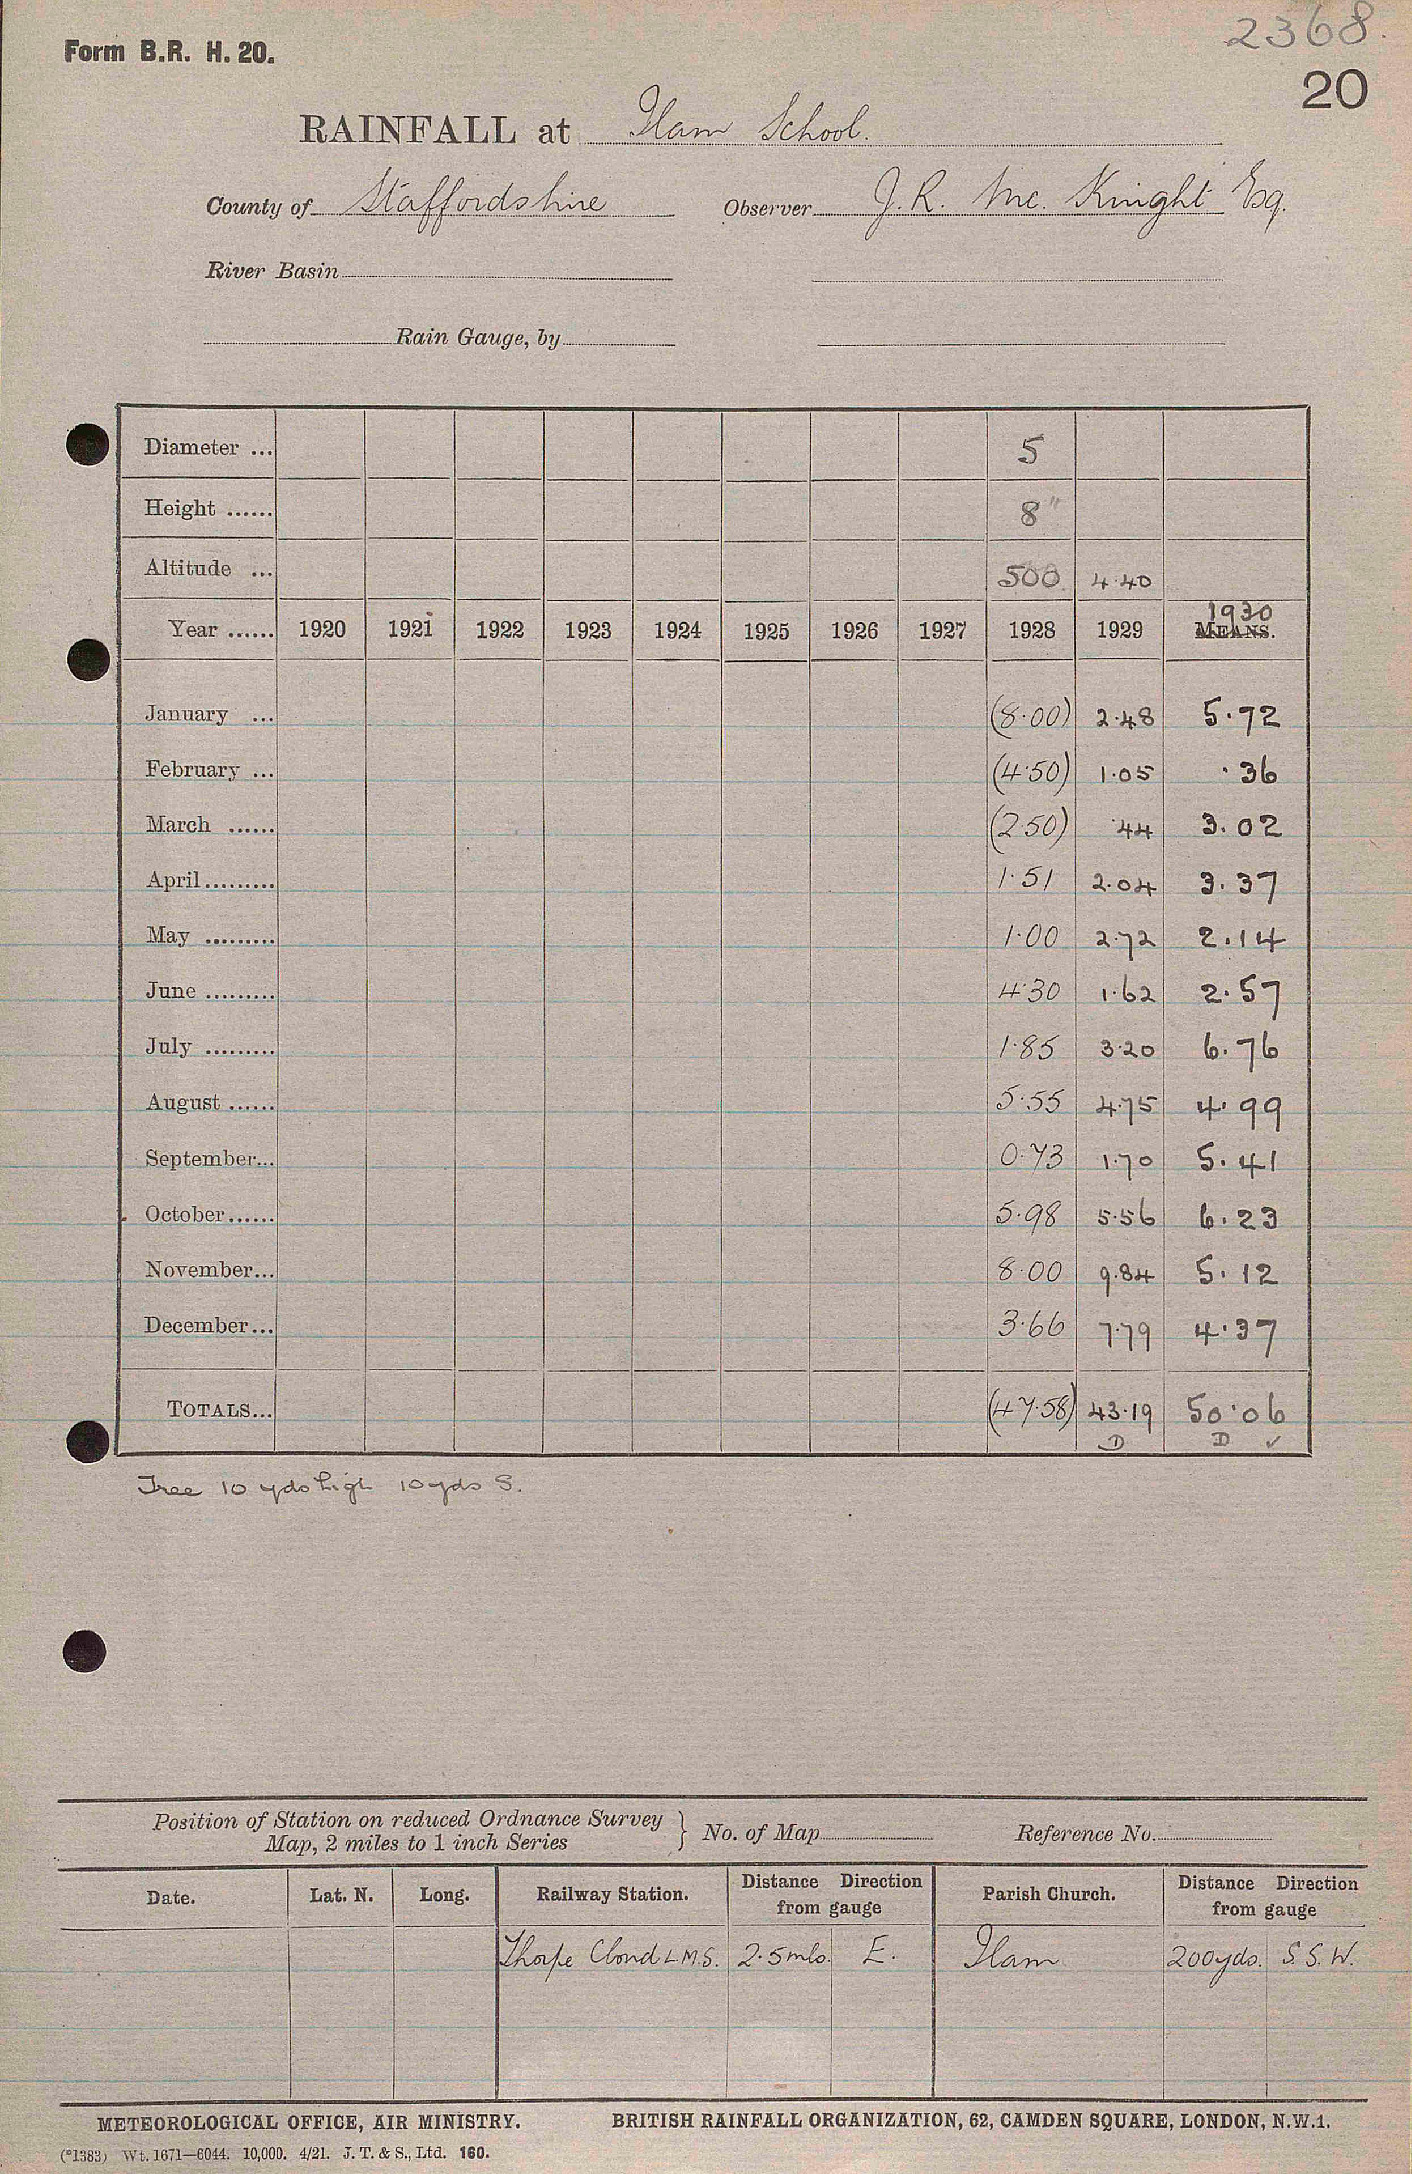 2368.
Form B.R. H. 20.
20
RAINFALL at Ilam School.
County of Staffordshire Observer J. R. Mc. Knight Esq.
River Basin
Rain Gauge, by
Diameter ... 5
Height ...... 8"
Altitude ... 500 440
1930
Year ...... 1920 1921 1922 1923 1924 1925 1926 1927 1928 1929 MEANS.
January ... (8·00) 2·48 5·72
February ... (4·50) 1·05 ·36
March ...... (2·50) ·44 3.02
April ......... 1·51 2·04 3.37
May ......... 1·00 2·72 2.14
June ......... 4·30 1·62 2·57
July ......... 1·85 3·20 6.76
August ...... 5·55 4·75 4·99
September... 0·73 1·70 5.41
October ...... 5·98 5·56 6.23
November... 8·00 9·84 5.12
December... 3·66 7·79 4·37
TOTALS... (47·58) 43·19 50·06
D D ✓
Tree 10 yds high 10 yds S.
Position of Station on reduced Ordnance Survey
Map, 2 miles to 1 inch Series } No. of Map Reference No.
Date. Lat. N. Long. Railway Station. Distance Direction from gauge Parish Church. Distance Direction from gauge
Thorpe Cloud L.M.S. 2·5 mls. E. Ilam 200 yds. S. S. W.
METEOROLOGICAL OFFICE, AIR MINISTRY. BRITISH RAINFALL ORGANIZATION, 62, CAMDEN SQUARE, LONDON, N.W.1.
(*1383) Wt. 1671—6044. 10,000. 4/21. J. T. & S., Ltd. 160.